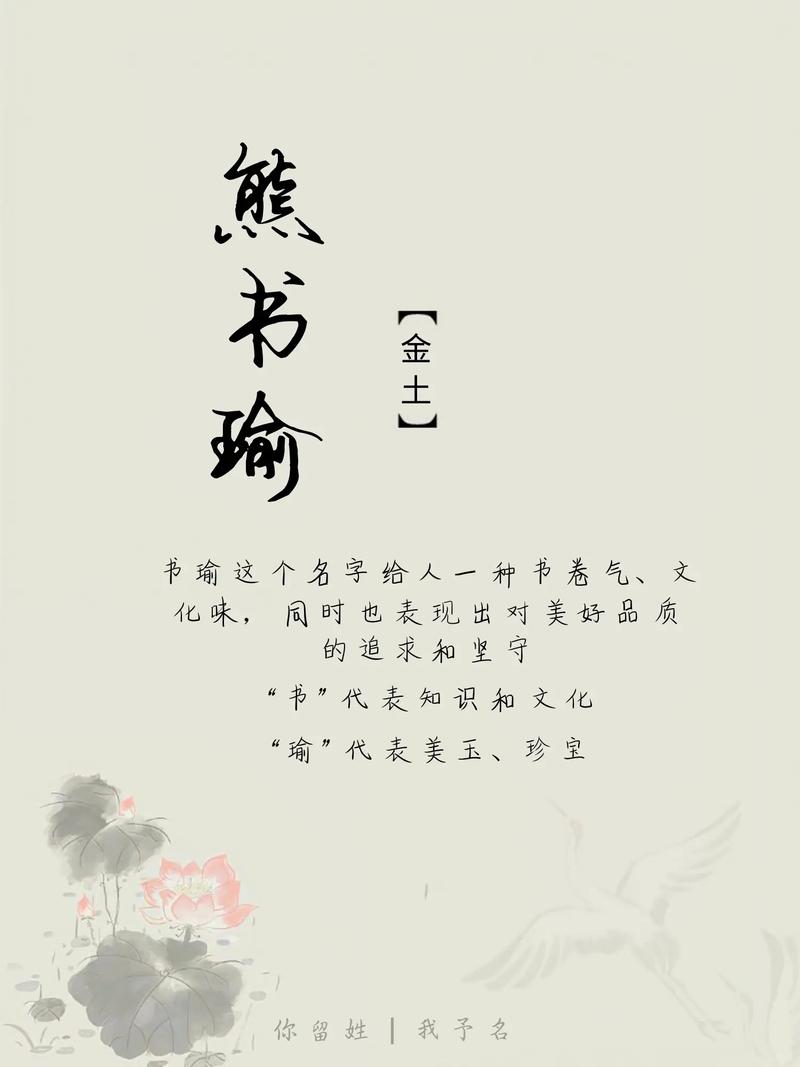 熊书瑜
【金土】
书瑜这个名字给人一种书卷气、文
化味，同时也表现出对美好品质
的追求和坚守
“书”代表知识和文化
“瑜”代表美玉、珍宝
你留姓|我予名